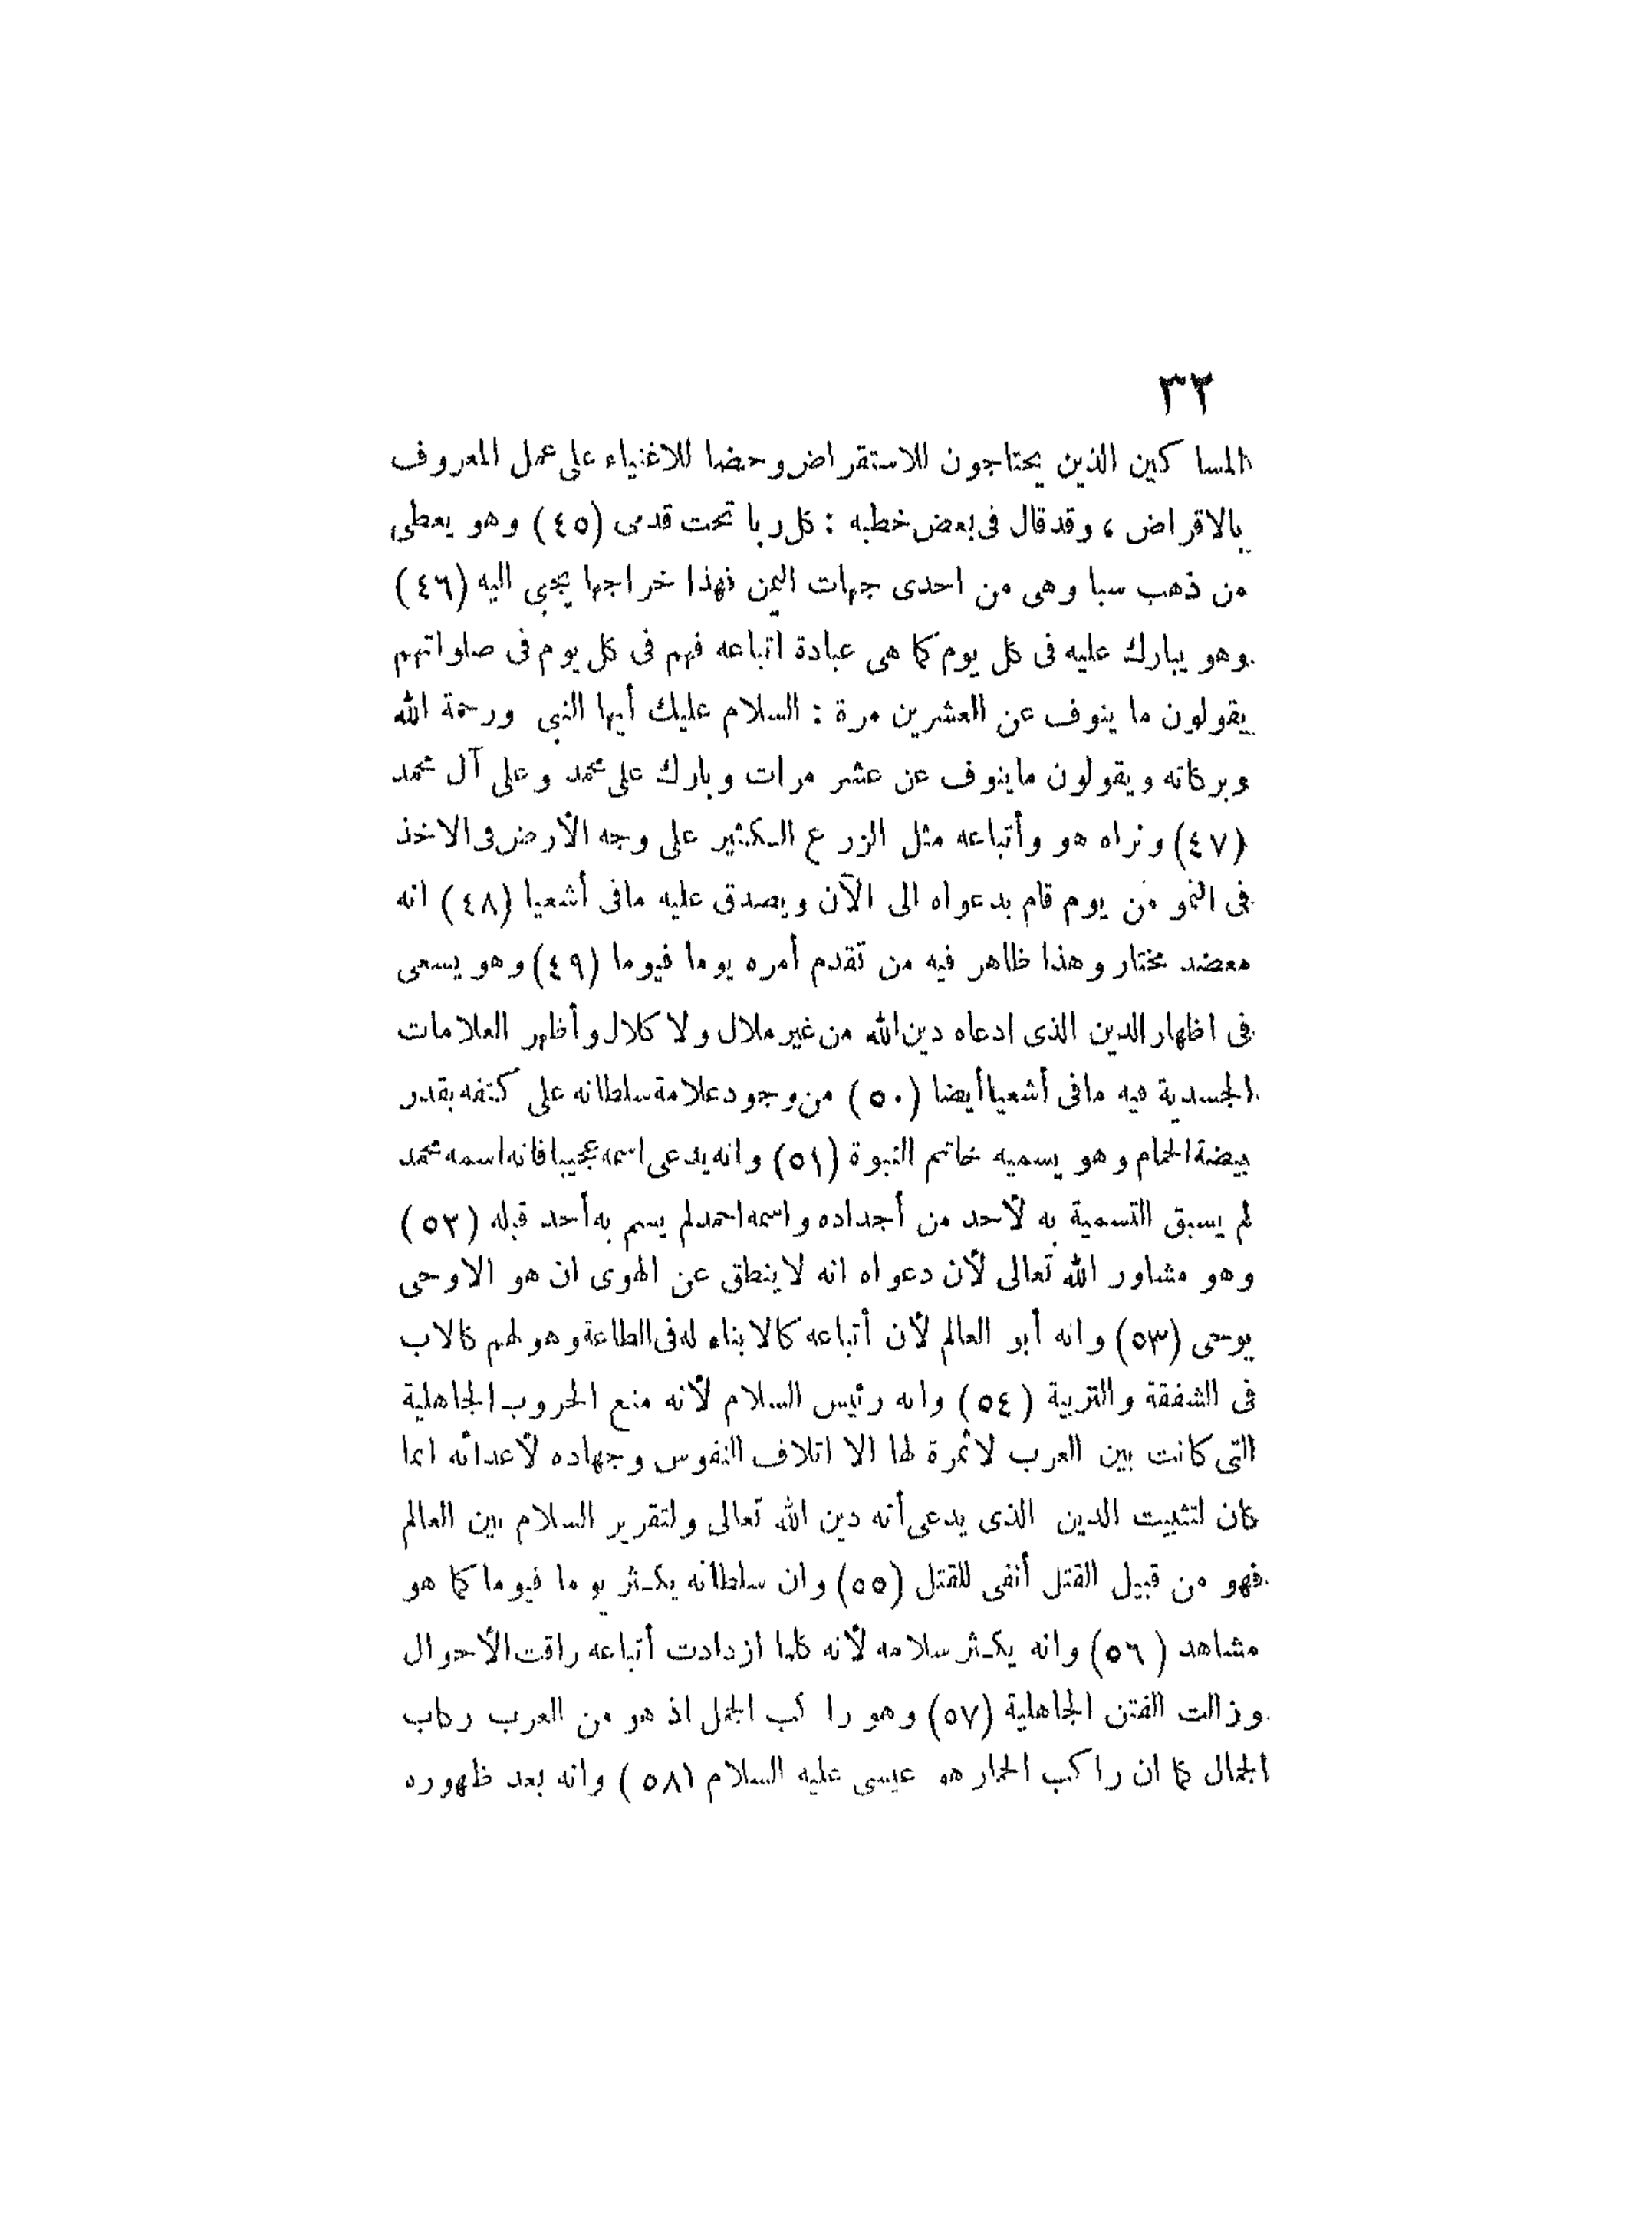 ٣٢
المساكين الذين يحتاجون للاستقراض وحضا للاغنياء على عمل المعروف
بالاقراض ، وقد قال فى بعض خطبه : كل ربا تحت قدمى (٤٥) وهو يعطى
من ذهب سبا وهى من احدى جهات اليمن فهذا خراجها يجبى اليه (٤٦)
وهو يبارك عليه فى كل يوم كما هى عبادة اتباعه فهم فى كل يوم فى صلواتهم
يقولون ما ينوف عن العشرين مرة : السلام عليك أيها النبى ورحمة الله
وبركاته ويقولون ماينوف عن عشر مرات وبارك على محمد وعلى آل محمد
(٤٧) ونراه هو وأتباعه مثل الزرع الكثير على وجه الأرض فى الاخذ
فى النمو من يوم قام بدعواه الى الآن ويصدق عليه مافى أشعيا (٤٨) انه
معضد مختار وهذا ظاهر فيه من تقدم أمره يوما فيوما (٤٩) وهو يسعى
فى اظهار الدين الذى ادعاه دين الله من غير ملال ولا كلال وأظهر العلامات
الجسدية فيه مافى أشعيا أيضا (٥٠) من وجود علامة سلطانه على كتفه بقدر
بيضة الحمام وهو يسميه خاتم النبوة (٥١) وانه يدعى اسمه عجيبا فانه اسمه محمد
لم يسبق التسمية به لأحد من أجداده واسمه احمد لم يسم به أحد قبله (٥٢)
وهو مشاور الله تعالى لأن دعواه انه لاينطق عن الهوى ان هو الاوحى
يوحى (٥٣) وانه أبو العالم لأن أتباعه كالابناء له فى الطاعة وهو لهم كالاب
فى الشفقة والتربية (٥٤) وانه رئيس السلام لأنه منع الحروب الجاهلية
التى كانت بين العرب لاثمرة لها الا اتلاف النفوس وجهاده لأعدائه انما
كان لتثبيت الدين الذى يدعى أنه دين الله تعالى ولتقرير السلام بين العالم
فهو من قبيل القتل أنفى للقتل (٥٥) وان سلطانه يكثر يوما فيوما كما هو
مشاهد (٥٦) وانه يكثر سلامه لأنه كلما ازدادت أتباعه راقت الأحوال
وزالت الفتن الجاهلية (٥٧) وهو راكب الجمل اذ هو من العرب ركاب
الجمال كما ان راكب الحمار هو عيسى عليه السلام (٥٨) وانه بعد ظهوره